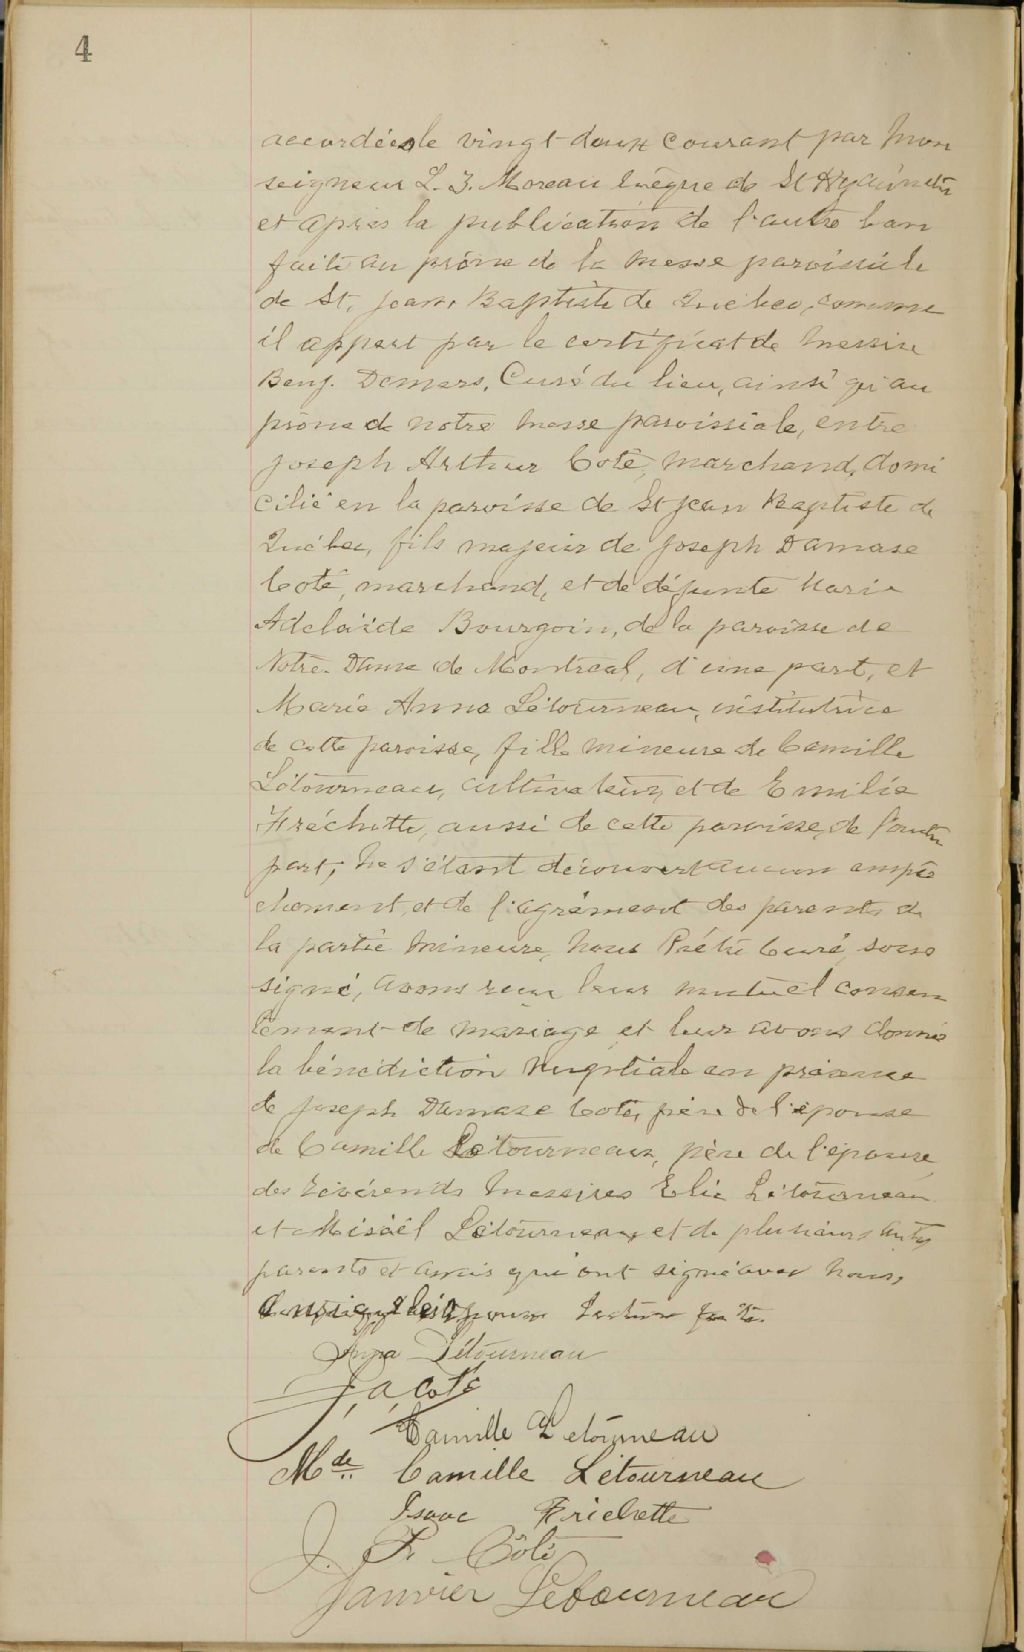 4
accordée le vingt-deux courant par Mon
seigneur L. Z. Moreau Evêque de St Hyacinthe
et après la publication de l'autre ban
faite au prône de la messe paroissiale
de St. Jean Baptiste de Québec, comme
il appert par le certificat de Messire
Benj. Demers, Curé du lieu, ainsi qu'au
prône de notre messe paroissiale, entre
Joseph Arthur Coté, marchand, domi
cilié en la paroisse de St Jean Baptiste de
Québec, fils majeur de Joseph Damase
Coté, marchand, et de défunte Marie
Adelaïde Bourgoin, de la paroisse de
Notre-Dame de Montreal, d'une part, et
Marie Anna Létourneau, institutrice
de cette paroisse, fille mineure de Camille
Létourneau, cultivateur, et de Emilie
Fréchette, aussi de cette paroisse, de l'autre
part, ne s'étant découvert aucun empê
chement, et de l'agrément des parents de
la partie mineure, nous Prêtre Curé sous
signé, avons reçu leur mutuel consen
tement de mariage et leur avons donné
la bénédiction nuptiale en présence
de Joseph Damase Coté, père de l'épouse
de Camille Létourneau, père de l'épouse,
des Révérends Messires Elie Létourneau
et Misaël Létourneau et de plusieurs autres
parents et amis qui ont signé avec nous,
lecture faite.
Anna Létourneau
J, a, Coté
Camille Letourneau
Mde Camille Létourneau
Isaac Frichette
J. Côté
Janvier Letourneau